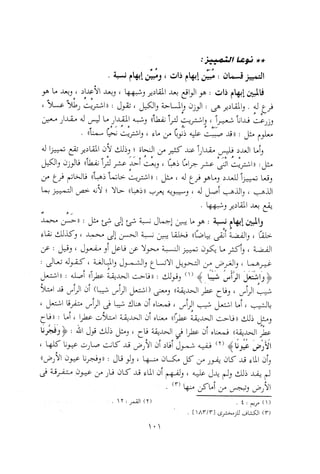 ** نوعا التمييز :
التمييز قسمان : مُبيِّن إبهام ذات ، ومُبيِّن إبهام نسبة .
فالمبين إبهام ذات : هو الواقع بعد المقادير وشبهها ، وبعد الأعداد ، وبعد ما هو
فرع له . والمقادير هى : الوزن والمساحة والكيل ، تقول : «اشتريت رطلاً عسلاً ،
وزرعت فداناً شعيراً ، واشتريت لتراً نفطاً» وشبه المقدار ما ليس له مقدار معين
معلوم مثل : «قد صببت عليه ذَنُوباً من ماء ، واشتريت نِحْياً سمناً» .
وأما العدد فليس مقداراً عند كثير من النحاة ؛ وذلك لأن المقادير تقع تمييزا له
مثل : «اشتريت اثنى عشر جراماً ذهباً ، وبعت أحد عشر لتراً نفطاً» فالوزن والكيل
وقعا تمييزاً للعدد وماهو فرع له ، مثل : «اشتريت خاتماً ذهباً» فالخاتم فرع من
الذهب ، والذهب أصل له ، وسيبويه يعرب «ذهبا» حالا ؛ لأنه خص التمييز بما
يقع بعد المقادير وشبهها .
والمبين إبهام نسبة : هو ما يبين إجمال نسبة شئ إلى شئ مثل : «حَسُنَ محمدٌ
خلقاً ، والفضة أنقى بياضاً» فخلقا يبين نسبة الحسن إلى محمد ، وكذلك نقاء
الفضة ، وأكثر ما يكون تمييز النسبة محولا عن فاعل أو مفعول ، وقيل : عن
غيرهما ، والغرض من التحويل الاتساع والشمول والمبالغة ، كقوله تعالى :
﴿ وَاشْتَعَلَ الرَّأْسُ شَيْبًا ﴾ (١) وقولك : «فاحت الحديقة عطراً» أصله : «اشتعل
شيب الرأس ، وفاح عطر الحديقة» ومعنى (اشتعل الرأس شيبا) أن الرأس قد امتلأ
بالشيب ، أما اشتعل شيب الرأس ، فمعناه أن هناك شيبا فى الرأس متفرقا اشتعل ،
ومثل ذلك «فاحت الحديقة عطرا» فمعناه أن الحديقة امتلأت عطرا ، أما : «فاح
عطر الحديقة» فمعناه أن عطرا فى الحديقة فاح ، ومثل ذلك قول الله : ﴿ وَفَجَّرْنَا
الأَرْضَ عُيُونًا ﴾ (٢) ففيه شمول أفاد أن الأرض قد كانت صارت عيونا كلها ،
وأن الماء قد كان يفور من كل مكان منها ، ولو قال : «وفجرنا عيون الأرض»
لم يفد ذلك ولم يدل عليه ، ولفهم أن الماء قد كان فار من عيون متفرقة فى
الأرض وتبجس من أماكن منها (٣) .
(١) مريم : ٤ .
(٢) القمر : ١٢ .
(٣) الكشاف للزمخشرى
١٠١